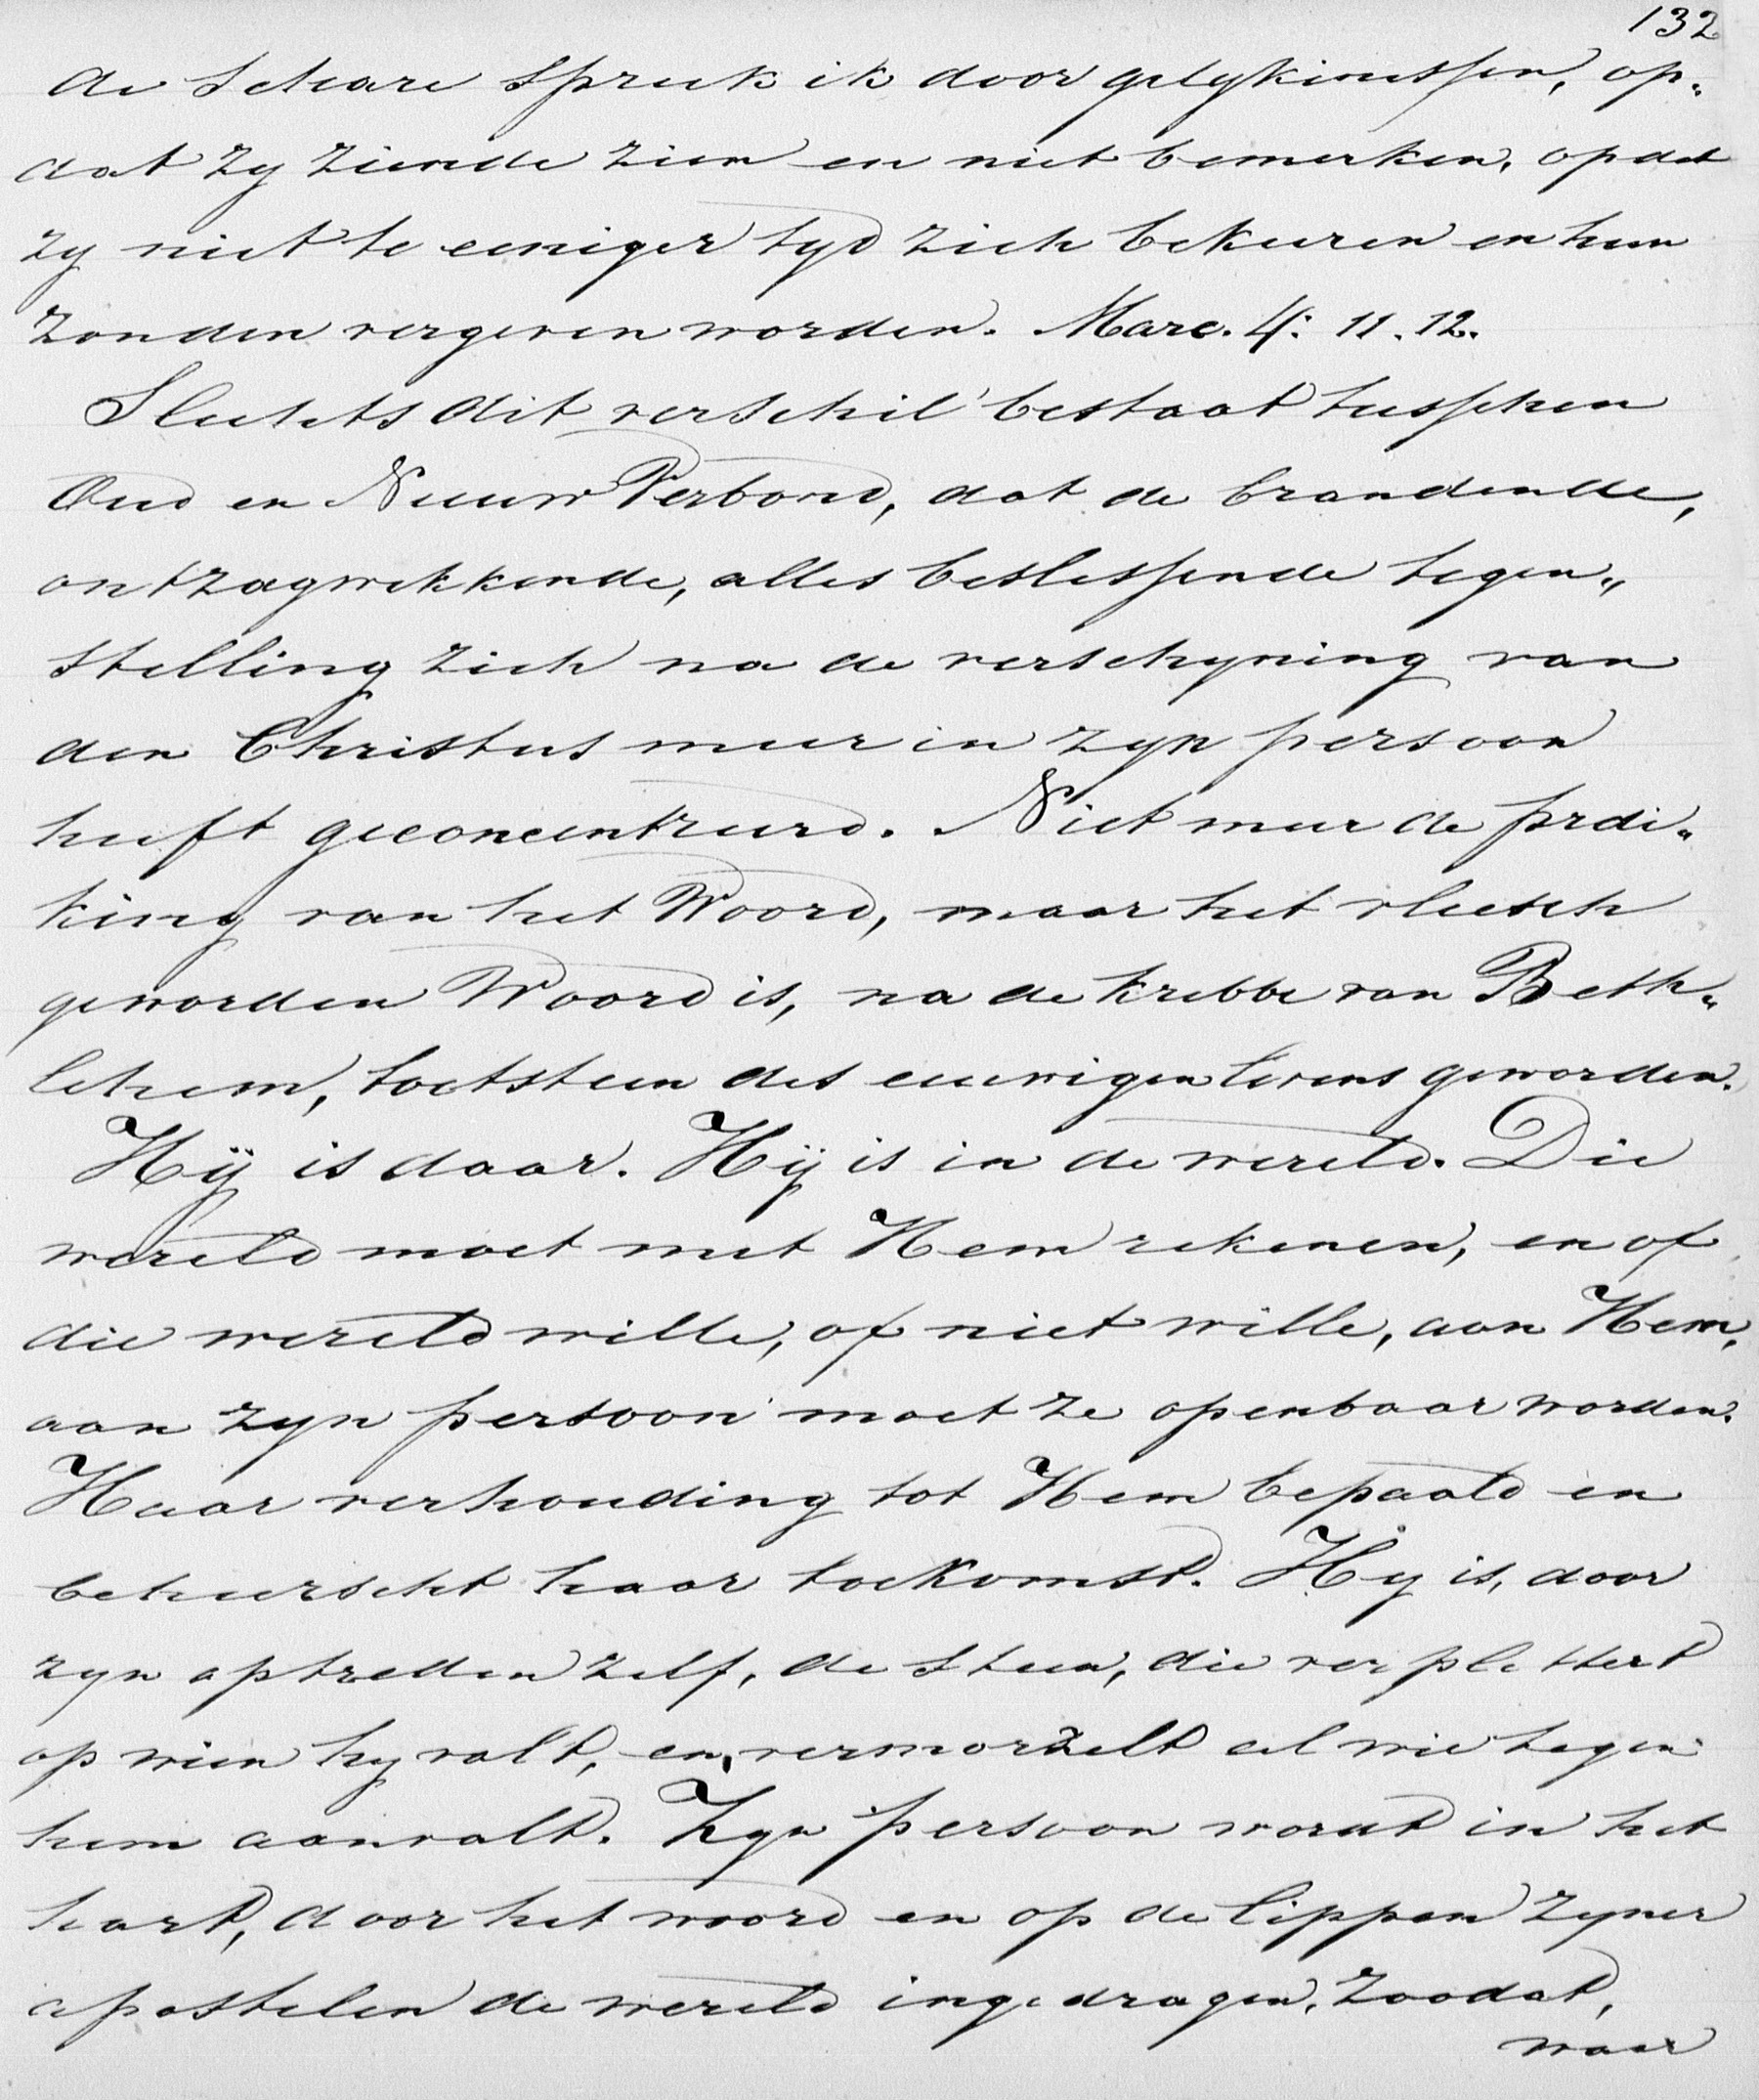 132
de schare spreek ik door gelykenissen, op„
dat zy ziende zien en niet bemerken, opdat
zy niet te eeniger tyd zich bekeeren en hun
zonden vergeven worden. Marc. 4: 11. 12.
Slechts dit verschil bestaat tusschen
Oud en Nieuw Verbond, dat de brandende,
ontzagwekkende, alles beslessende tegen„
stelling zich na de verschyning van
den Christus meer in zyn persoon
heeft geconcentreerd. Niet meer de predi„
king van het Woord, maar het vleesch
geworden Woord is, na de kribbe van Beth„
lehem, toetssteen des eeuwigen levens geworden.
Hij is daar. Hij is in de wereld. Die
wereld moet met Hem rekenen, en of
die wereld wille, of niet wille, aan Hem,
aan zyn persoon moet ze openbaar worden.
Haar verhouding tot Hem bepaald en
beheerscht haar toekomst. Hy is, door
zyn optreden zelf, de steen, die verplettert
op wien hy valt, en vermorzelt al wie tegen
hem aanvalt. Zyn persoon wordt in het
hart, door het woord en op de lippen zyner
apostelen de wereld ingedragen, zoodat,
waar